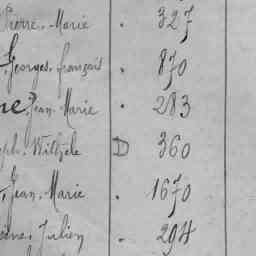 Pierre-Marie . 327
Georges, français . 870
ne, Jean-Marie . 283
ph. Withèle D 360
, Jean-Marie . 1670
Julien . 294